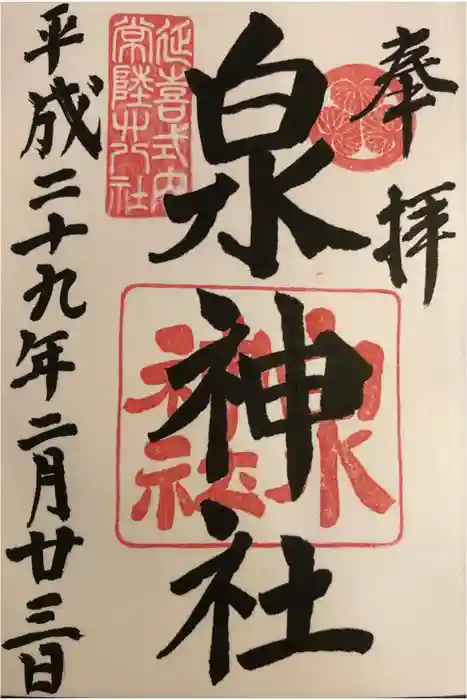 奉拝
泉神社
泉神社
延喜式内
常陸廿八社
平成二十九年二月廿三日